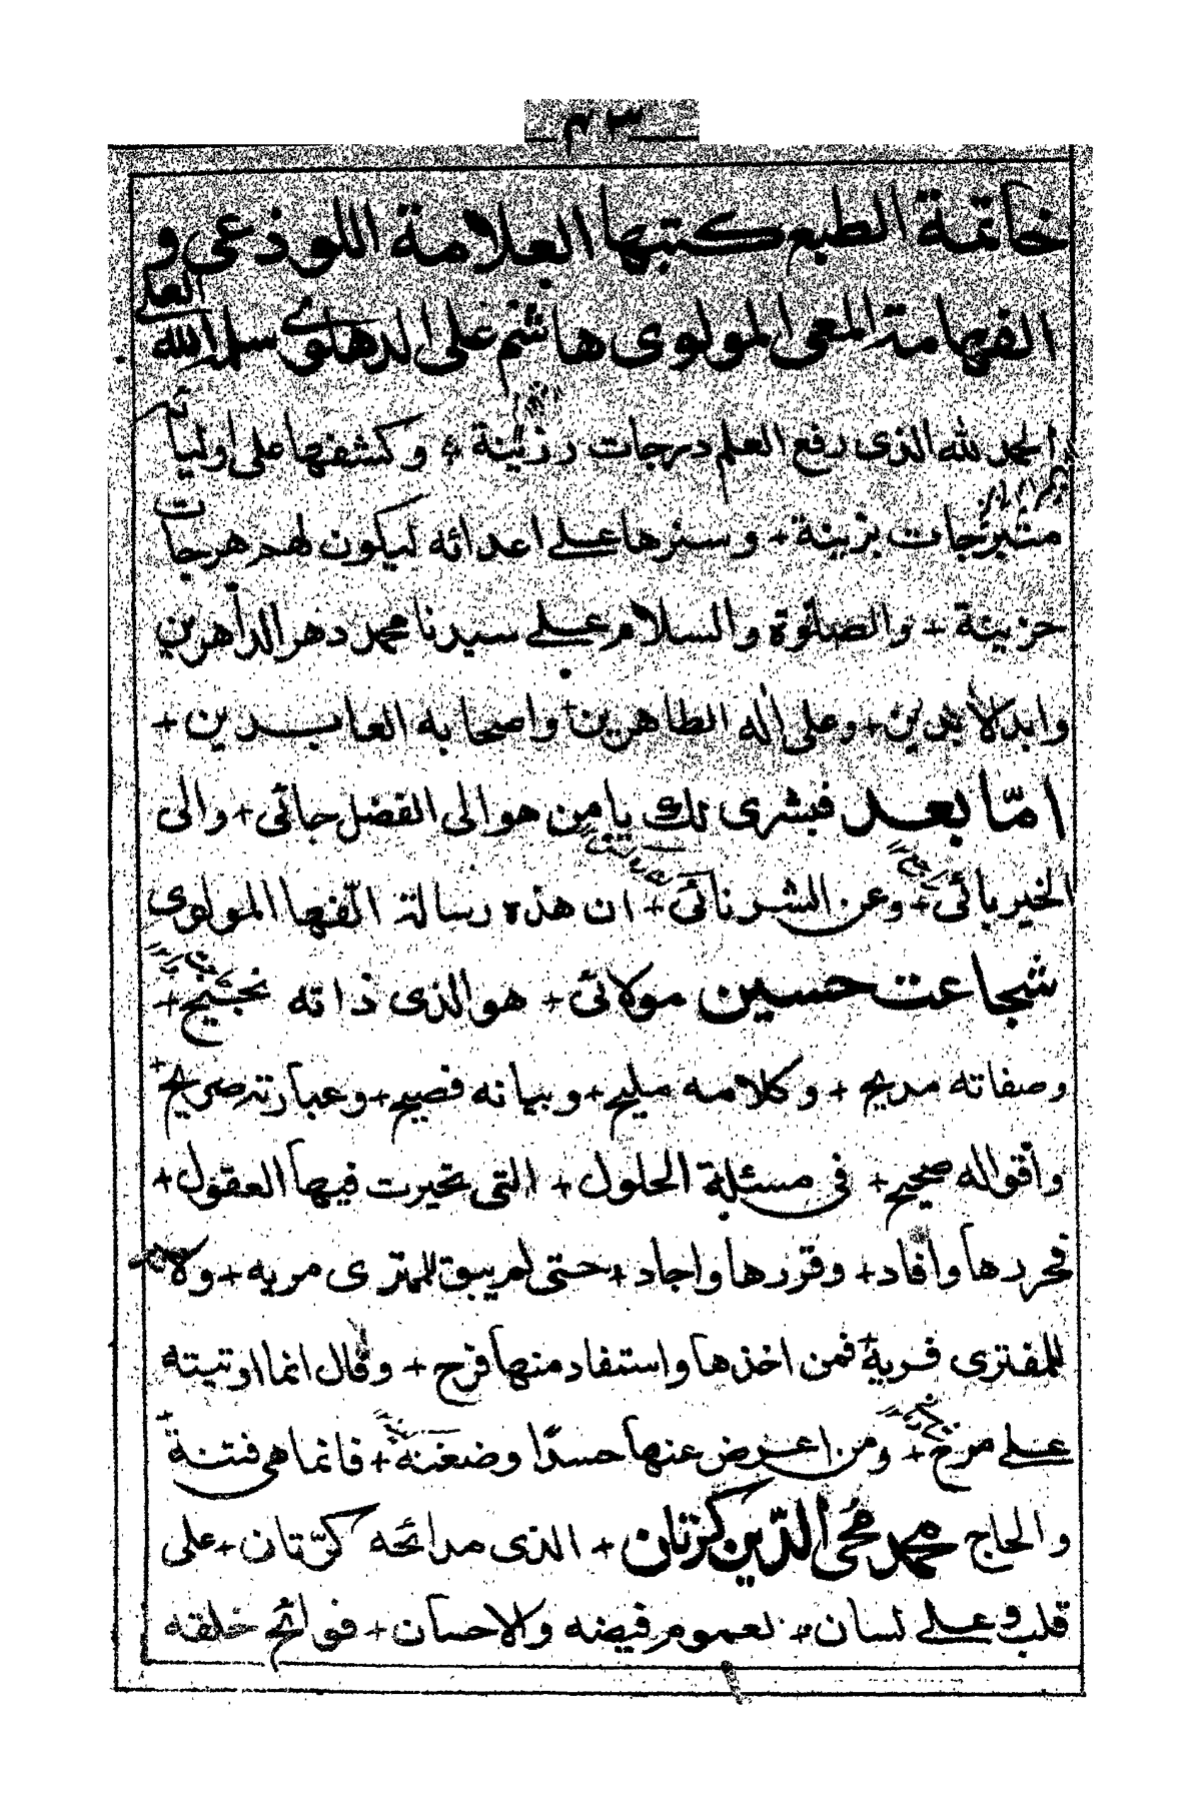 ٤٣
خاتمة الطبع كتبها العلامة اللوذعى و
الفهامة المعى المولوى هاشم على الدهلوى سلمه الله العلى
الحمد لله الذى رفع العلم درجات رزينة + وكشفها على اوليائه
متبرجات بزينة + وسترها على اعدائه ليكون لهم هرجات
حزينة + والصلوة والسلام على سيدنا محمد دهر الداهرين
وابد الابدين + وعلى اله الطاهرين + واصحابه العابدين +
امّا بعد فبشرى لك يا من هو الى الفضل جائى + والى
الخير بائى + وعن الشر نائى + ان هذه رسالة الّفها المولوى
شجاعت حسين مولائى + هو الذى ذاته نجيح +
وصفاته مديح + وكلامه مليح + وبيانه فصيح + وعبارته صريح +
واقواله صحيح + فى مسئلة الحلول + التى تحيرت فيها العقول +
فحررها وافاد + وقررها واجاد + حتى لم يبق للمترى مرية + ولا
للمفترى فرية + فمن اخذها واستفاد منها فرح + وقال انما اوتيته
على مرح + ومن اعرض عنها حسدًا وضغنة + فانما هى فتنة +
والحاج محمد مُحى الدّين كرتان + الذى مدائحه كرّتان + على
قلب وعلى لسان + لعموم فيضه والاحسان + فوائح خلقه